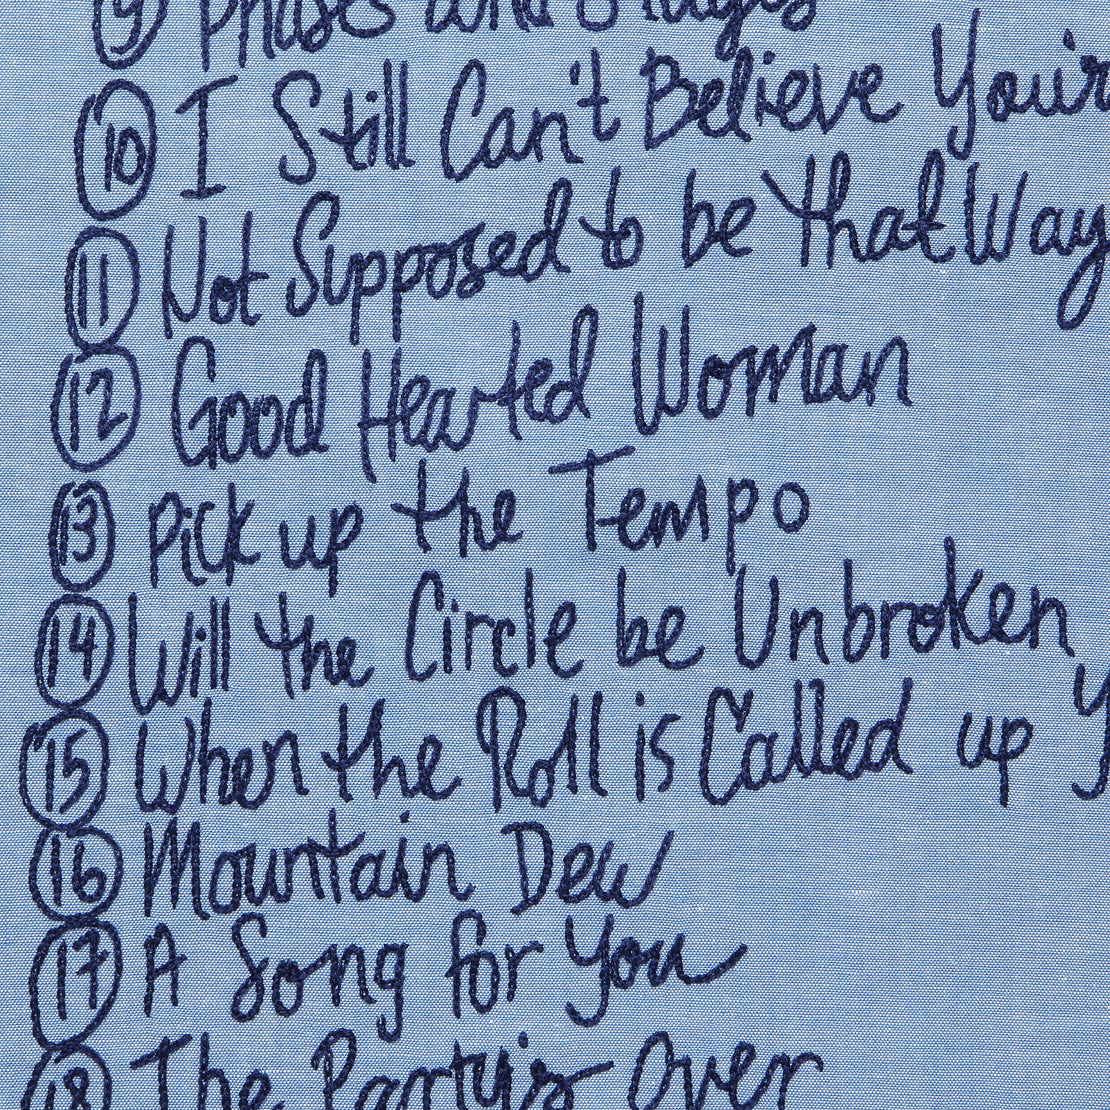 9 Phases and Stages
10 I Still Can't Believe You'r
11 Not Supposed to be that Way
12 Good Hearted Woman
13 Pick up the Tempo
14 Will the Circle be Unbroken
15 When the Roll is Called up Y
16 Mountain Dew
17 A Song for You
18 The Party's Over